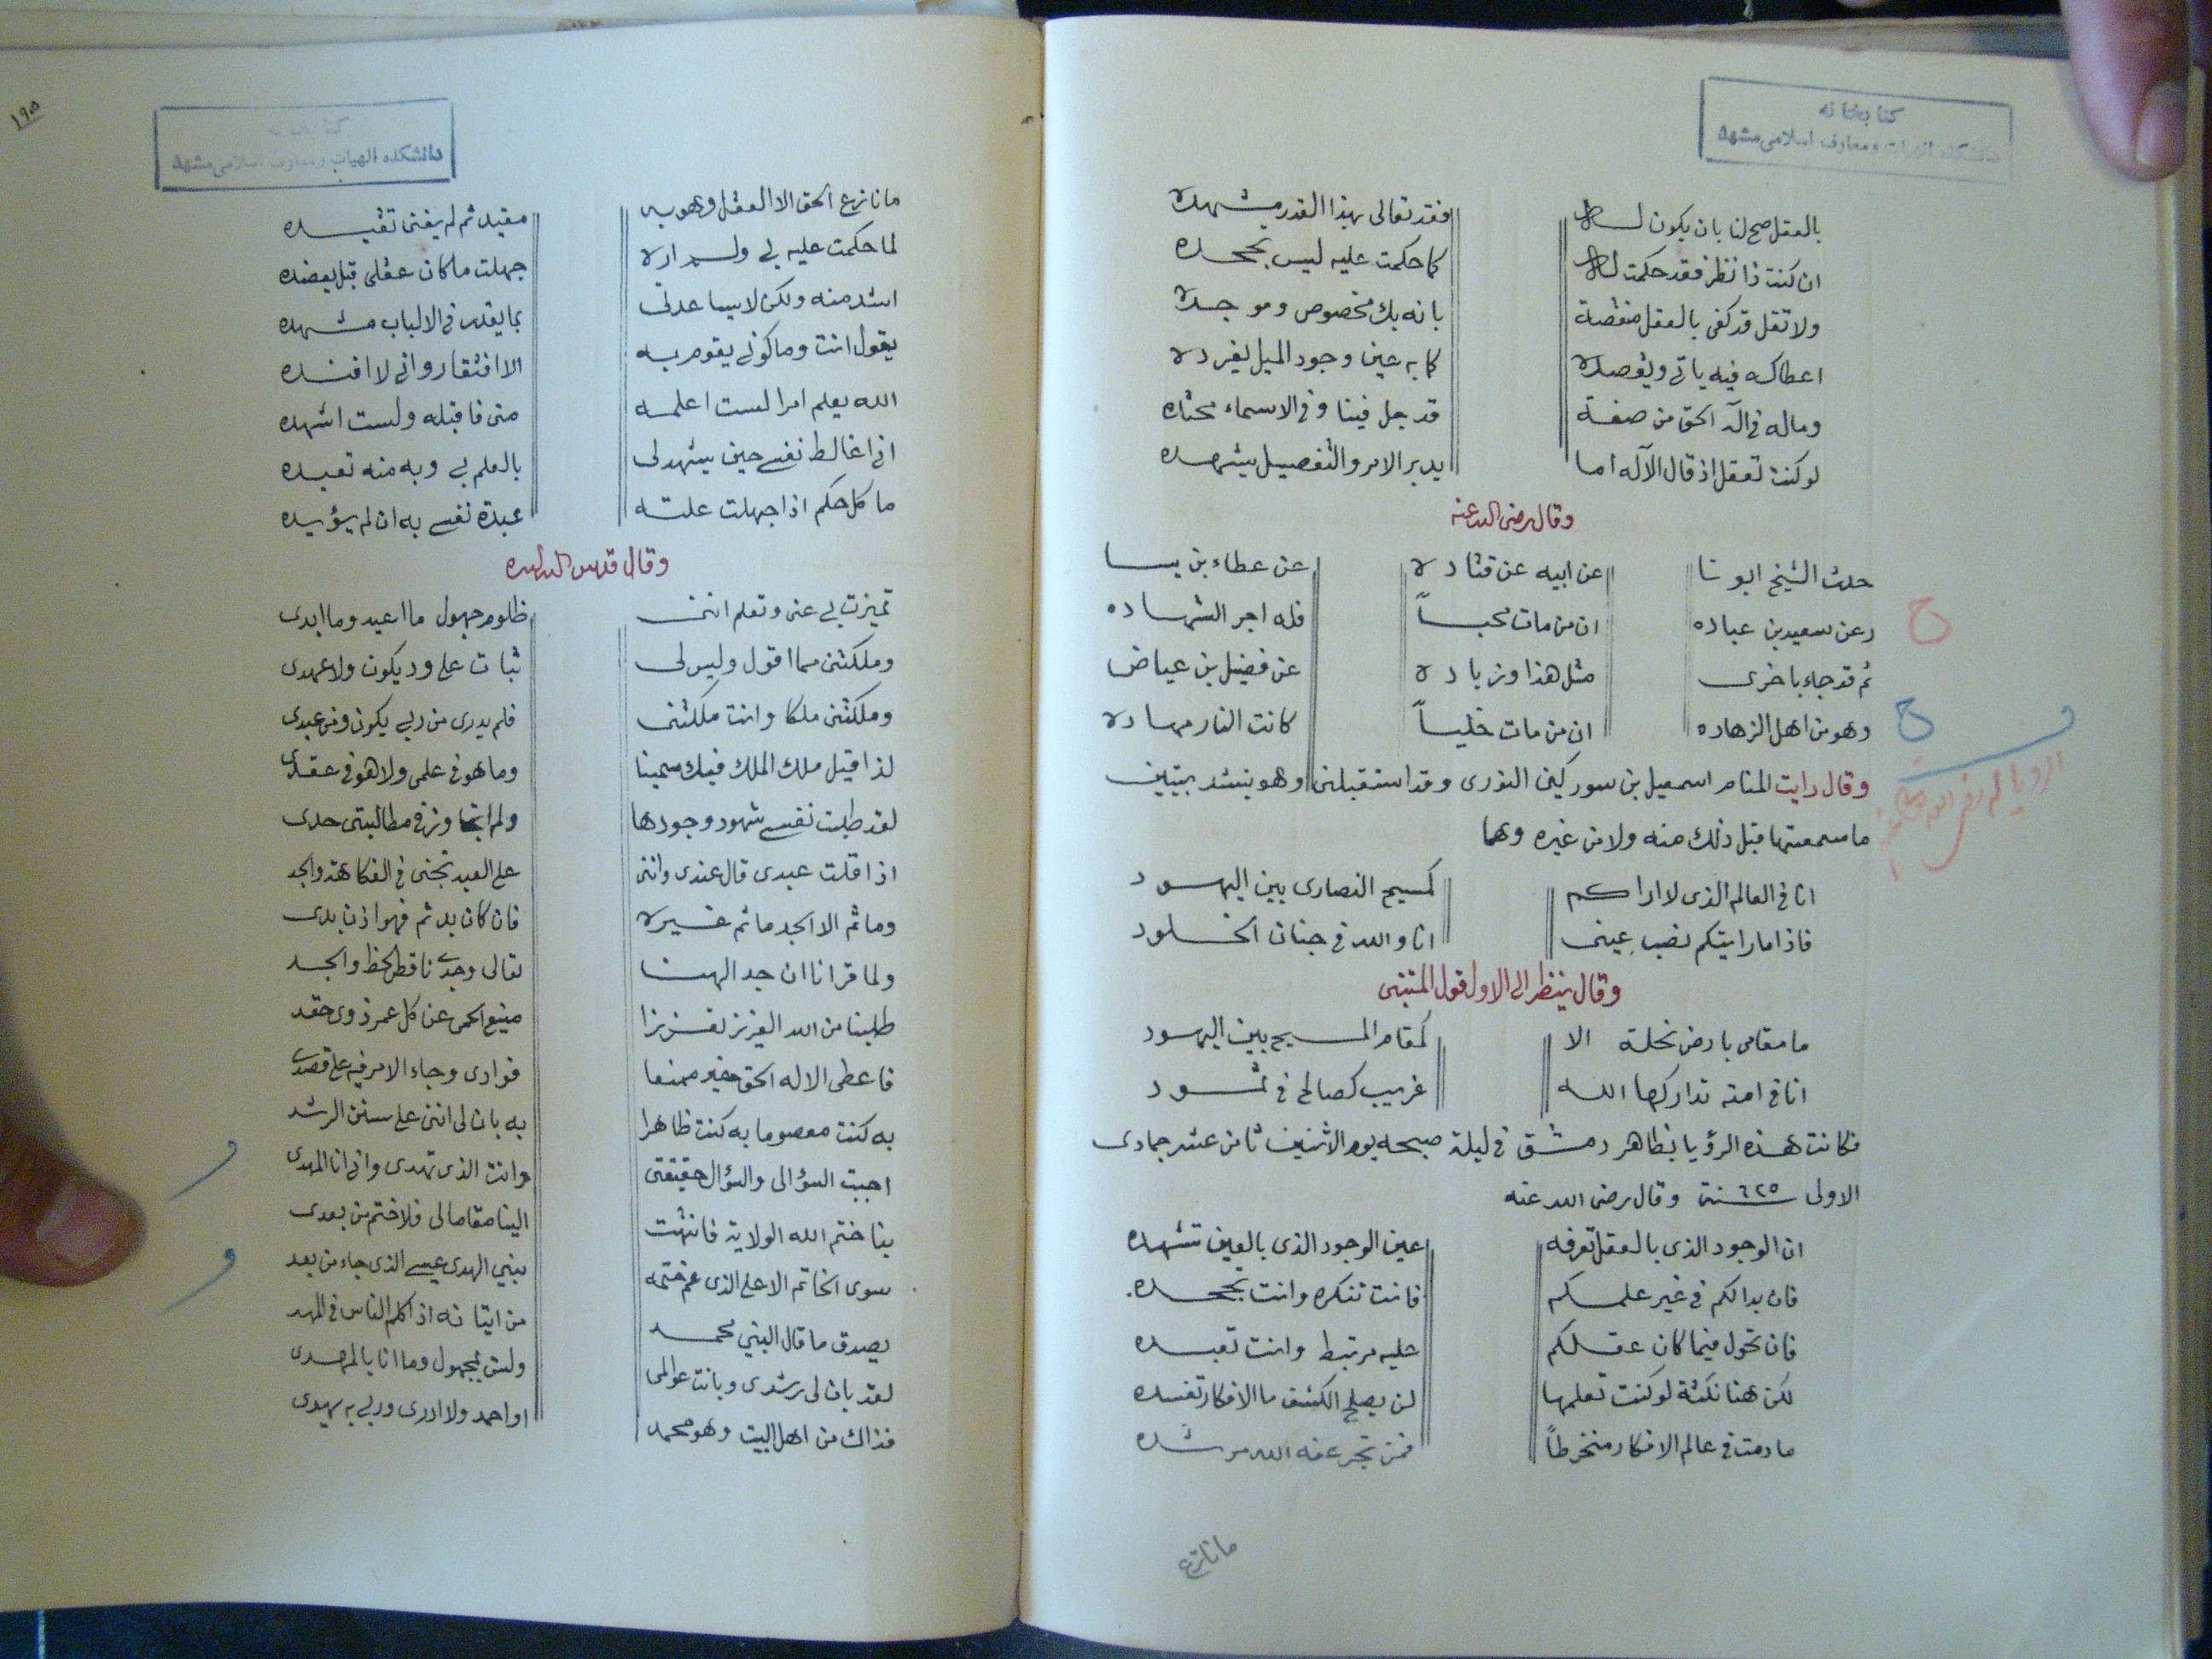 كتابخانه
دانشكده الهيات ومعارف اسلامى مشهد
بالعقل صح لنا بان يكون له فقد تعالى بهذا القدر مشهده
ان كنت ذا نظر فقد حكمت له كما حكمت عليه ليس تجحده
ولا تقل قد كفى بالعقل منقصة بانه بك مخصوص وموجده
اعطاكه فيه ياتى ويقصده كما به عين وجود الميل يفرده
وماله فى اله الحق من صفة قد جل فينا وفى الاسماء محتده
لو كنت تعقل اذ قال الآله اما يدبر الامر والتفصيل يشهده
وقال رضى الله عنه
حدث الشيخ ابونا عن ابيه عن قتاده عن عطاء بن يسا
رعن سعيد بن عباده ان من مات محباً فله اجر الشهاده
ثم قد جاء باخرى مثل هذا وزياده عن فضيل بن عياض
وهو من اهل الزهاده ان من مات خلياً كانت النار مهاده
وقال رايت المنام اسمعيل بن سودكين النورى وقد استقبلنى وهو ينشد بيتين
ما سمعتها قبل ذلك منه ولا من غيره وهما
انا فى العالم الذى لا اراكم كمسيح النصارى بين اليهود
فاذا ما رايتكم نصب عينى انا والله فى جنان الخلود
وقال ينظر الى الاول قول المتنبى
ما مقامى بارض نخلة الا كمقام المسيح بين اليهود
انا فى امة تداركها الله غريب كصالح فى ثمود
فكانت هذه الرؤيا بظاهر دمشق فى ليلة صبحه يوم الاثنين ثامن عشر جمادى
الاولى سنة ٦٢٥ وقال رضى الله عنه
ان الوجود الذى بالعقل تعرفه عين الوجود الذى بالعين تشهده
فان بدالكم فى غير علمكم فانت تنكره وانت تجحده
فان تحول فيما كان عقلكم عليه مرتبط وانت تعبده
لكن هنا نكتة لو كنت تعلمها لن يصلح الكشف ما الافكار تفسده
ما دمت فى عالم الافكار منخرطاً فمن تجرعنه الله مرشده
ما نازع
١٩٥
كتابخانه
دانشكده الهيات ومعارف اسلامى مشهد
ما نازع الحق الا العقل وهو به مقيد ثم لم يفنى تقيده
لما حكمت عليه بى ولم اره جهلت ما كان عقلى قبل يعضده
اشد منه ولكن لا يساعدنى بما يقدر فى الالباب مشهده
يقول انت وما كونى يقوم به الا افتقار وانى لا افنده
الله يعلم امرا لست اعلمه منى فاقبله ولست اشهده
انى اغالط نفسى حين يشهد لى بالعلم بى وبه منه تعبده
ما كل حكم اذا جهلت علته عبدة نفسى به ان لم يؤيده
وقال قدس الله سره
تميزت بى عنى وتعلم اننى ظلوم جهول ما اعيد وما ابدى
وملكتنى مما اقول وليس لى ثبات على ود يكون ولا عهدى
وملكتنى ملكا وانت ملكتنى فلم يدرى من ربى يكون ومن عبدى
لذا قيل ملك الملك فيك سمينا وما هو فى علمى ولا هو فى عقدى
لقد طلبت نفسى شهود وجودها ولم اتجاوز فى مطالبتى حدى
اذا قلت عبدى قال عندى واننى على العبد تجنى فى الفكاهة والجد
وما ثم الا الجد ما ثم غيره فان كان بد ثم فهو اذن بدى
ولما قرانا ان جد الهنا تعالى وجدى ناقص الحظ والجد
طلبنا من الله العزيز تعززا منيع الحمى عن كل عمر ذوى حقد
فاعطى الاله الحق خير ممنعا فوادى وجاء الامر فيه على قصدى
به كنت معصوما به كنت ظاهرا به بان لى اننى على سنن الرشد
اجبت السؤالى والسؤال حقيقتى وانت الذى تهدى وانى انا المهدى
بنا ختم الله الولاية فانتهت الينا مقاما لى فلا ختم من بعدى
سوى الخاتم الاعلى الذى عم ختمه نبيى الهدى عيسى الذى جاء من بعد
يصدق ما قال النبى محمد من ايتانه اذ اكلم الناس فى المهد
لقد بان لى رشدى وبانت عوالمى ولست بمجهول وما انا بالمهدى
فذاك من اهل البيت وهو محمد او احمد ولا ادرى وربى به يهدى